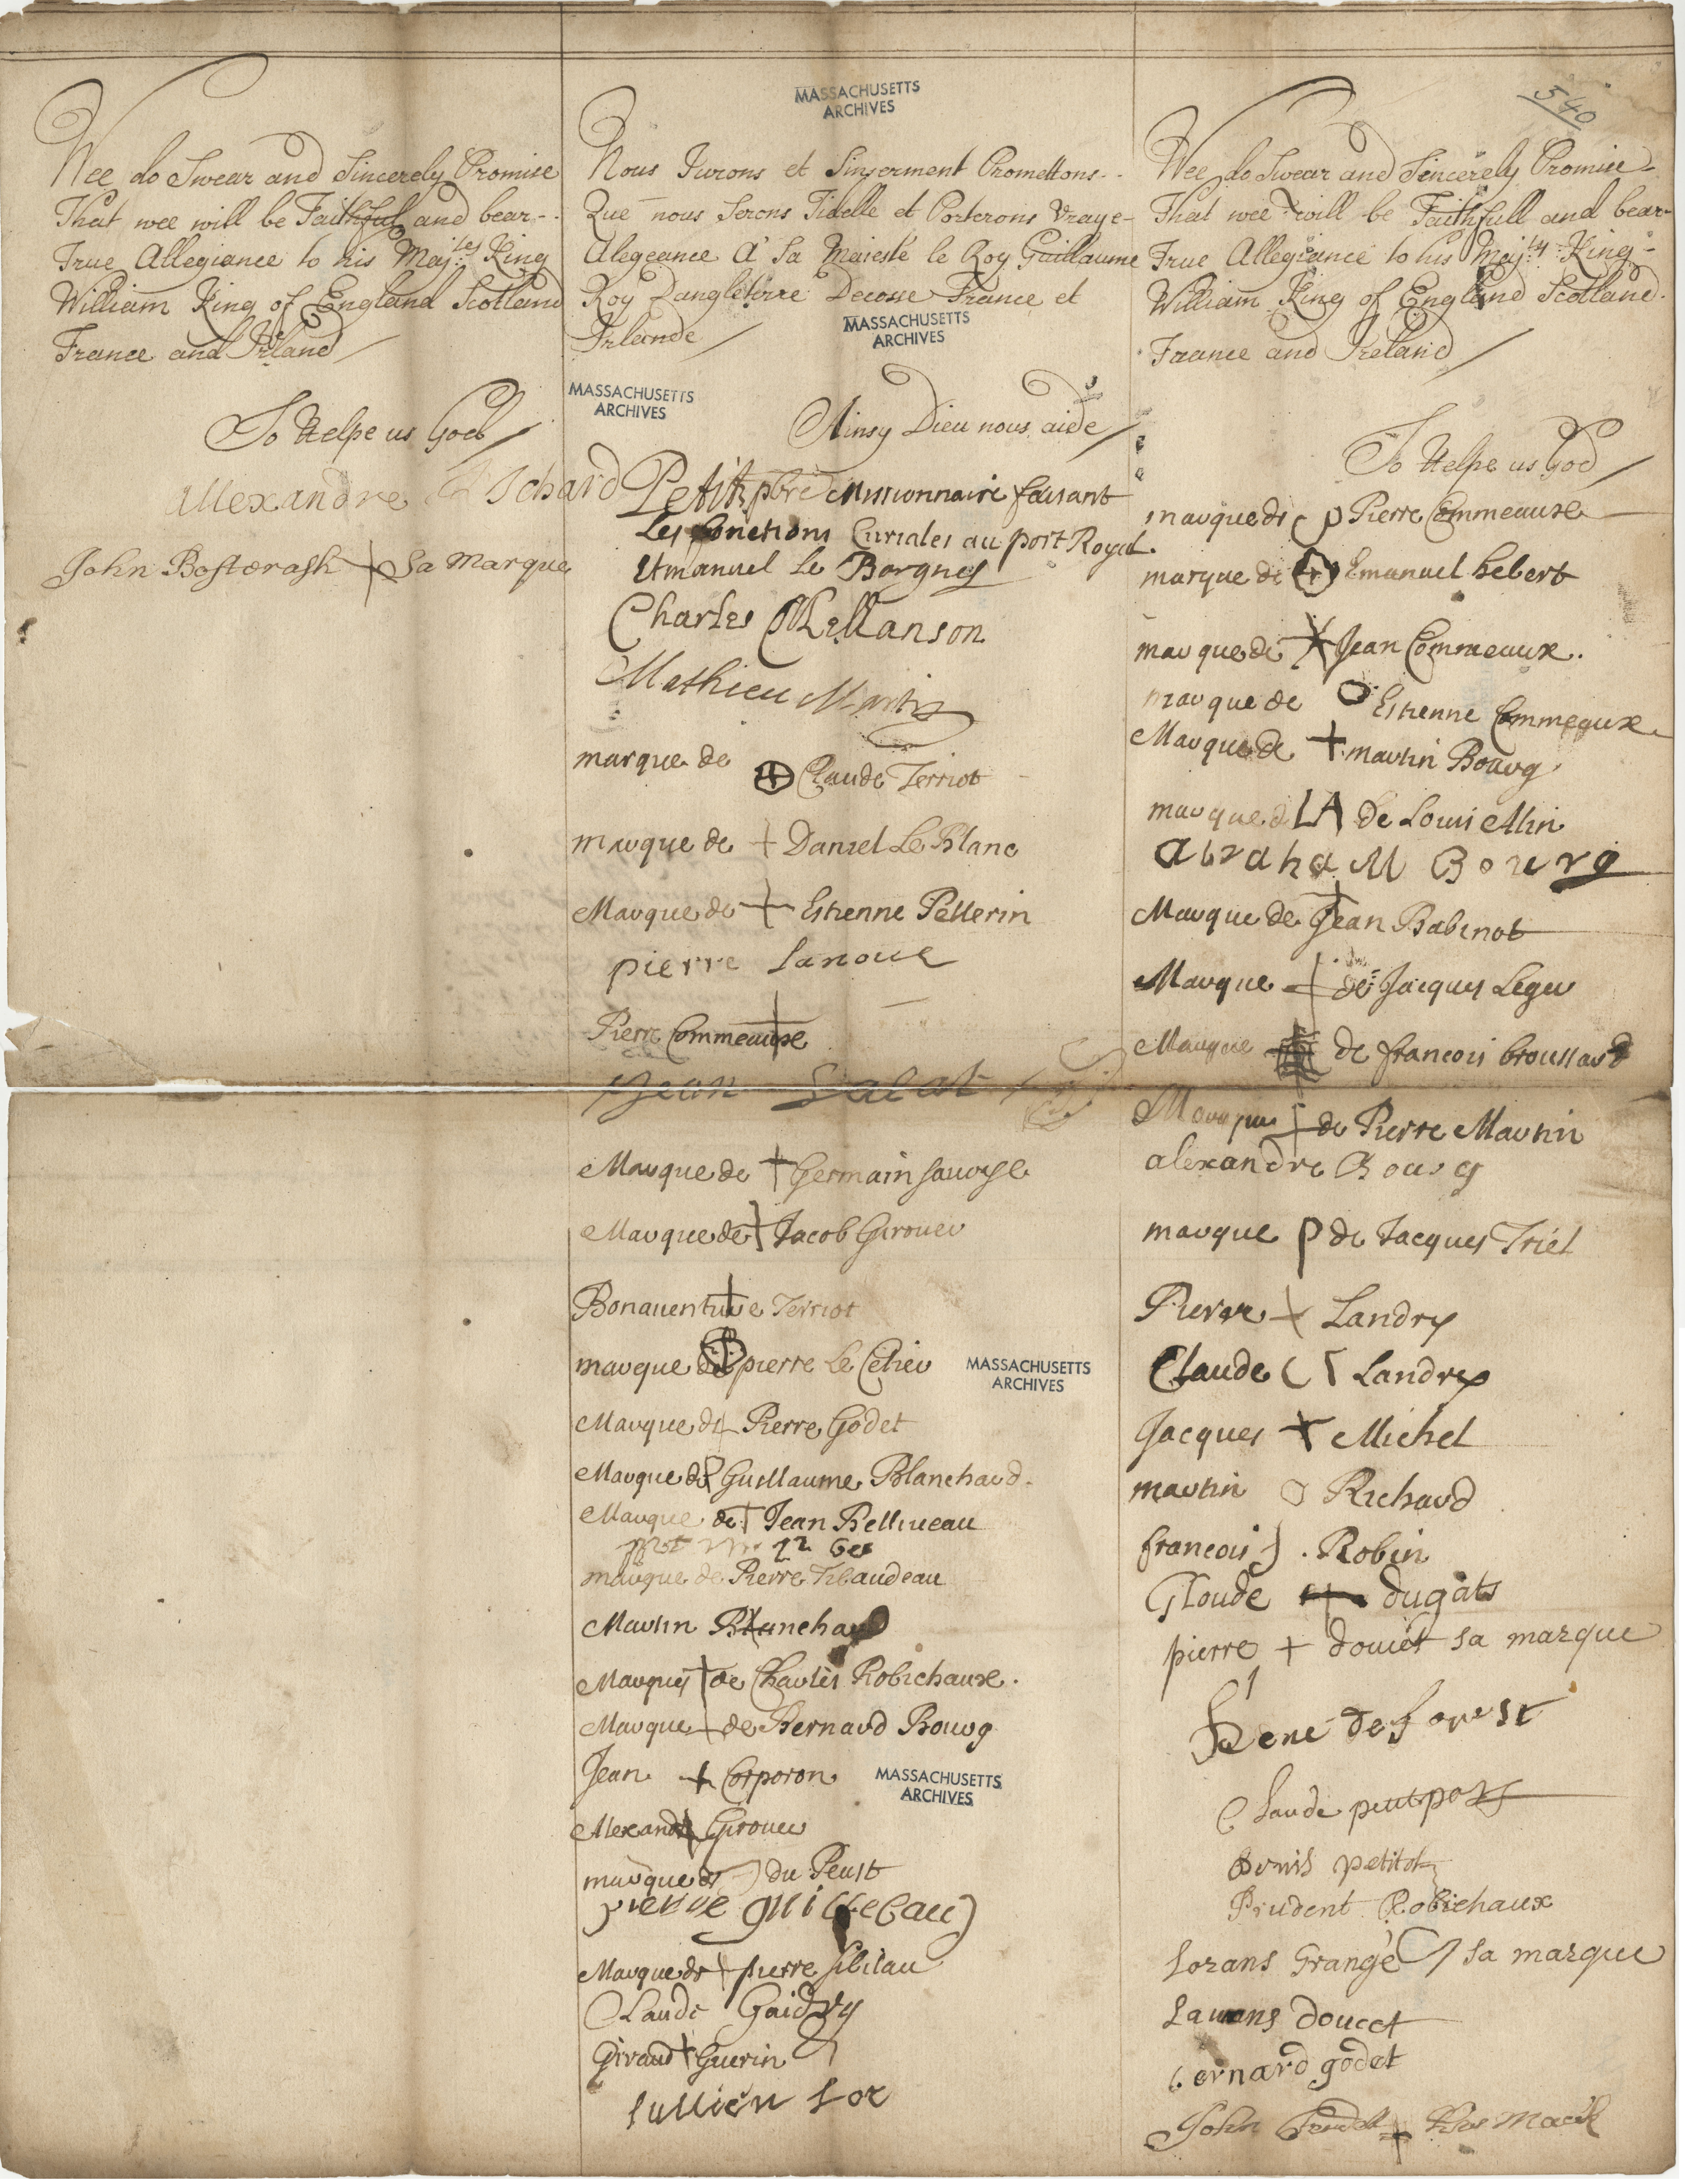 Wee do Swear and Sincerely Promise
That wee will be Faithful and bear
True Allegiance to his Maj:ties King
William King of England Scotland
France and Irland
So Helpe us God
allexandre Richard
John Bastarash sa marque
MASSACHUSETTS
ARCHIVES
Nous Jurons et Sinserment Promettons
Que nous Serons Fidelle et Porterons Vraye
Alegeance A Sa Majesté le Roy Guillaume
Roy Dangleterre Decosse France et
Irlande
MASSACHUSETTS
ARCHIVES
MASSACHUSETTS
ARCHIVES
Ainsy Dieu nous aide
Petit pbre missionnaire faisant
Les fonctions Curiales au port Royal.
Emanuel Le Borgne
Charles Mellanson
Mathieu Martin
marque de Claude Terriot
marque de + Daniel Le Blanc
Marque de + Estienne Pellerin
pierre Lanoue
Pierre Commeaux
Jean
Marque de + Germain Savoye
Marque de Jacob Girouer
Bonaventure Terriot
marque de pierre Le
MASSACHUSETTS
ARCHIVES
Marque de Pierre Godet
Marque de Guillaume Blanchard
Marque de Jean Belliveau
marque de Pierre Tibaudeau
Martin Blanchard
Marque de Charles Robichaux.
Marque de Bernard Bourg
Jean + Corporon
MASSACHUSETTS
ARCHIVES
Alexandre Girouer
marque de du Peust
pierre guillebau
Marque de pierre Sibilau
Claude Gaidry
Giraud + Guerin
Jullien Lor
540
Wee do Swear and Sincerely Promise
That wee will be Faithfull and bear
True Allegiance to his Maj:ty King
William King of England Scotland
France and Ireland
So Helpe us God
marque de p Pierre Commeaux
marque de Emanuel hebert
marque de X Jean Commeaux.
marque de O Estienne Commeaux
Marque de + martin Bourg
marque d LA de Louis Alin
abraham Bourg
Marque de Jean Babinot
Marque de Jacques Leger
Marque de francois broussard
Marque de Pierre Martin
alexandre Bourg
marque p de Jacques Triel
Pierre + Landry
Claude C Landry
Jacques + Michel
martin O Richard
francois . Robin
Gloude + dugats
pierre + doucet sa marque
Rene de forest
Claude petitpas
denis petitot
Prudent Robichaux
Lorans Grangé sa marque
Laurans doucet
bernard godet
John + His Mark